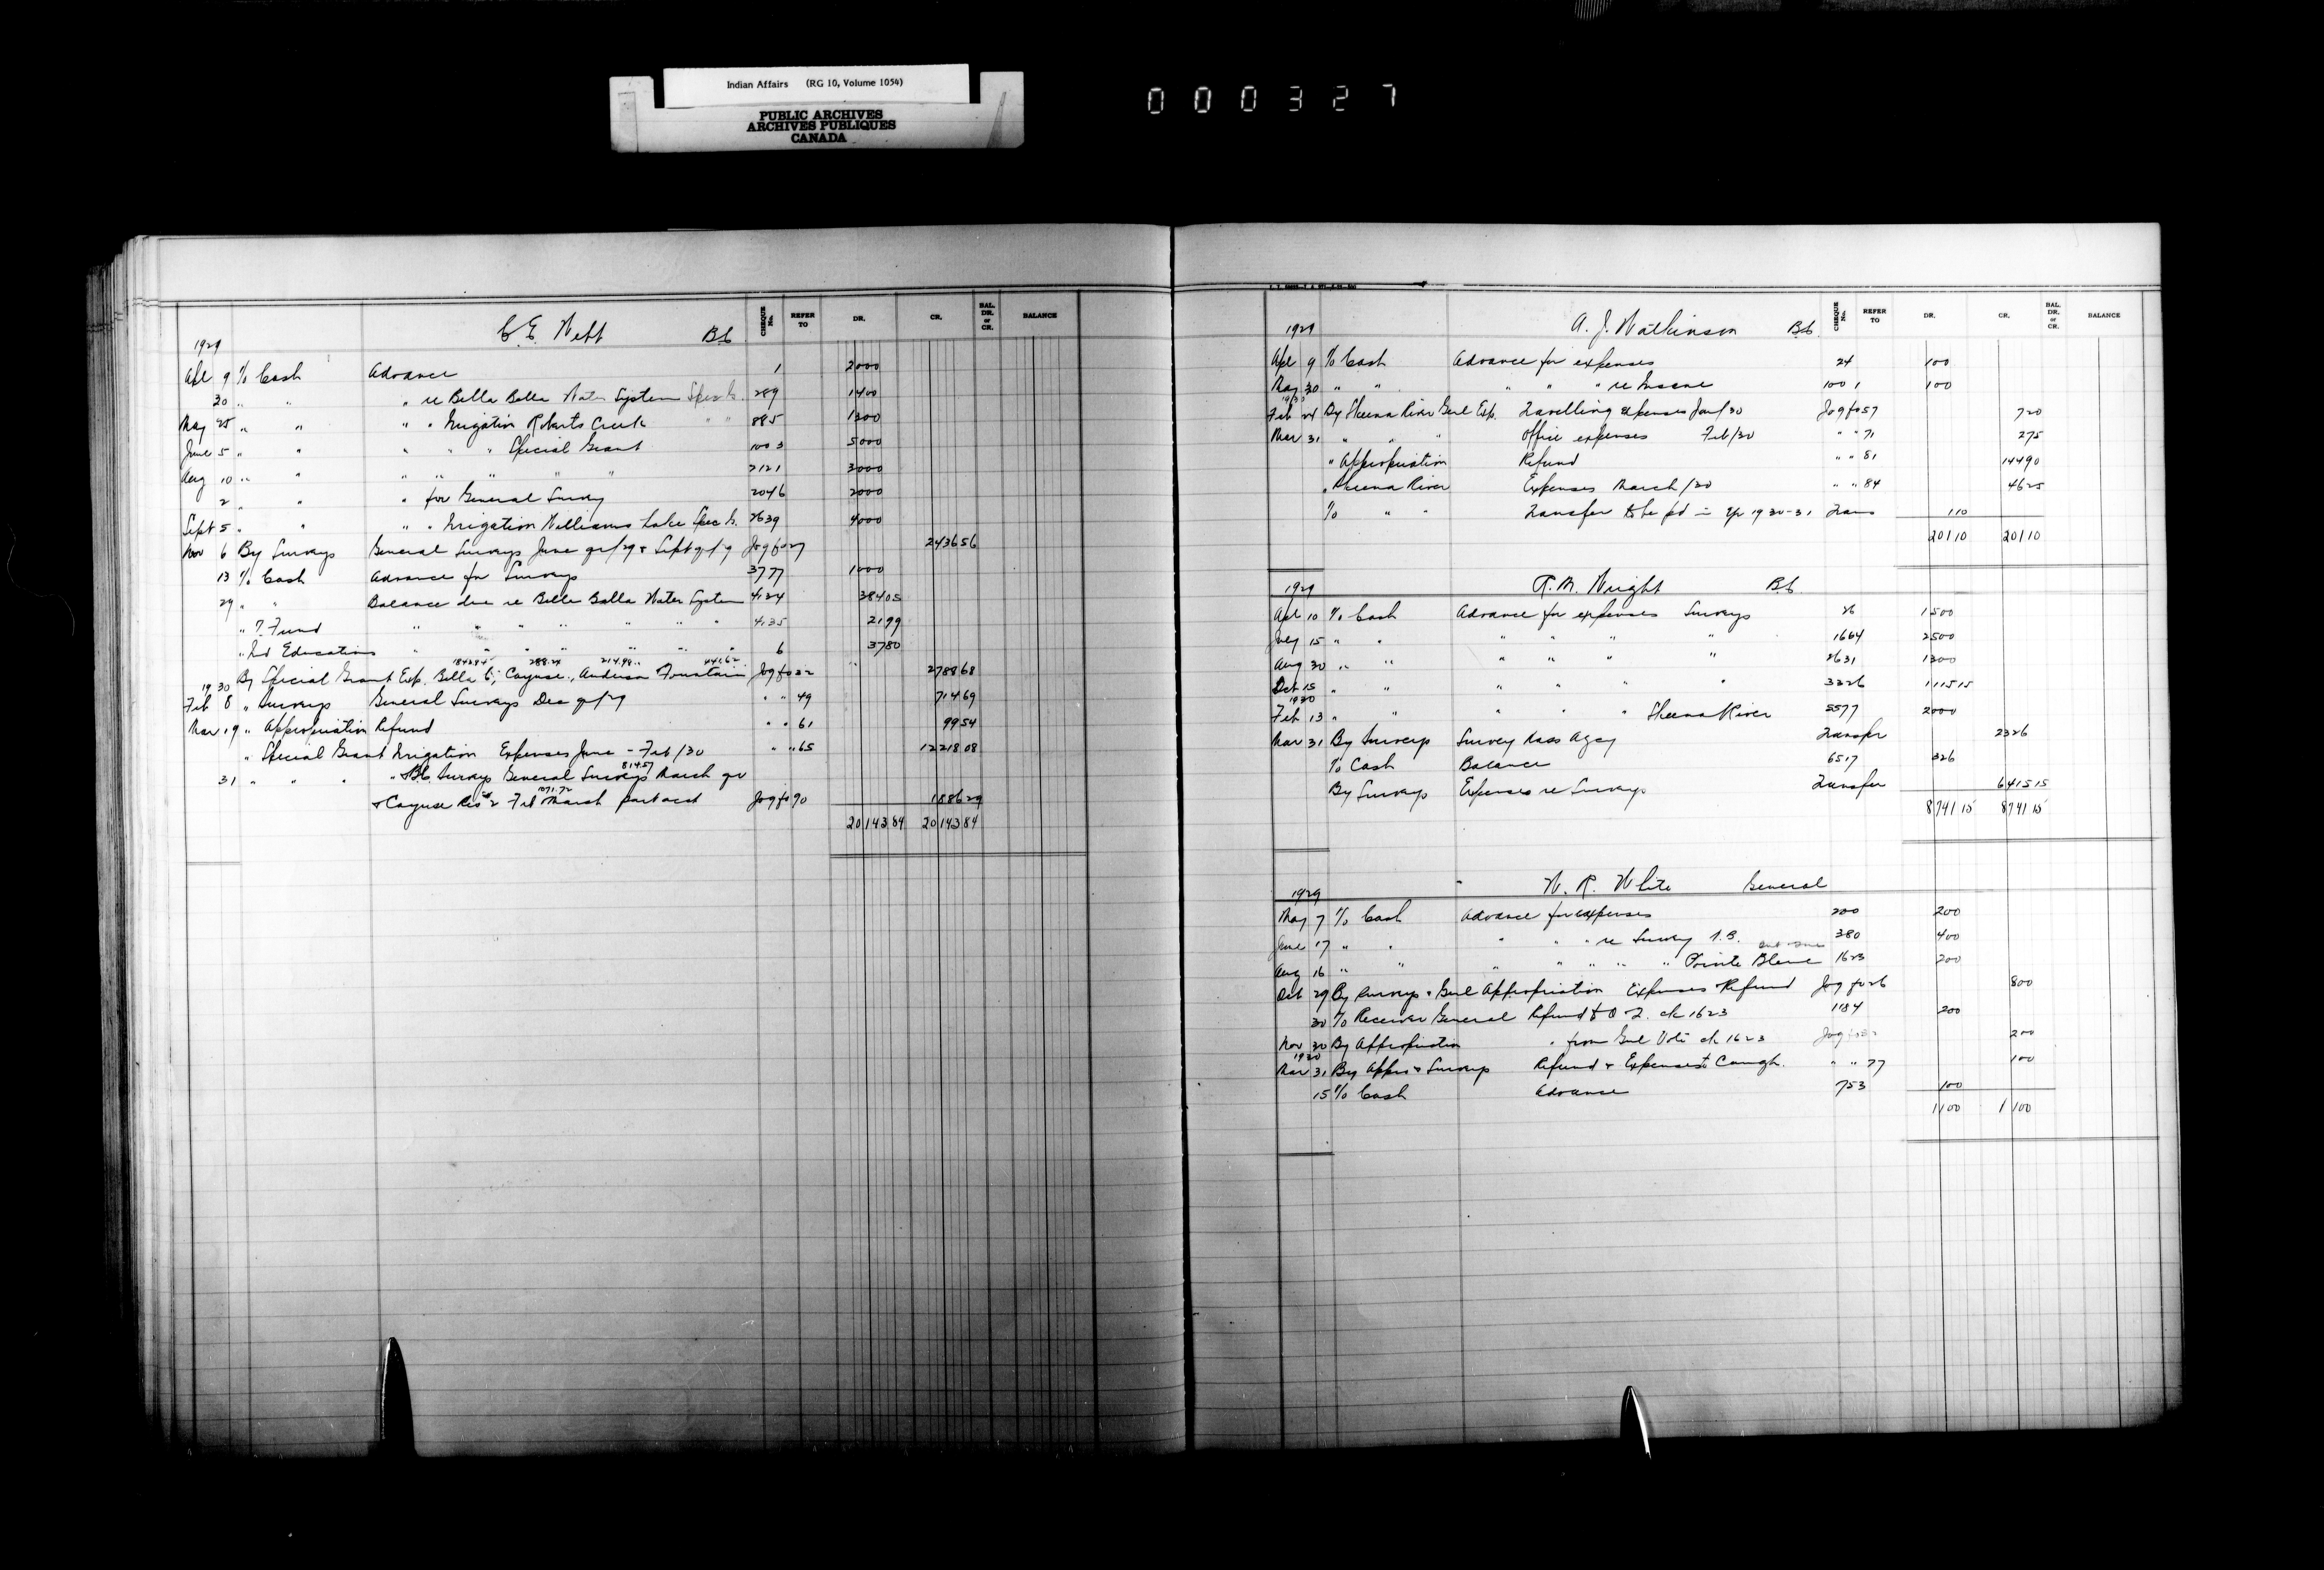 Indian Affairs (RG 10, Volume 1054)
PUBLIC ARCHIVES
ARCHIVES PUBLIQUES
CANADA
000327
1929 C. E. Webb B.C. CHEQUE No. REFER TO DR. CR. BAL. DR. or CR. BALANCE
Apl 9 To Cash Advance 1 2000
30 " " " re Bella Bella Water System Spec Gr. 289 1400
May 25 " " " " Irrigation Roberts Creek " " 885 1300
June 5 " " " " " Special Grant 1003 5000
Aug 10 " " " " " " " 2121 3000
2 " " " for General Survey 2046 2000
Sept 5 " " " " Irrigation Williams Lake Spec Gr. 2639 4000
Nov 6 By Surveys General Surveys June qr/29 & Sept qr/29 Jog fo 27 2436 56
13 To Cash Advance for Surveys 3777 1000
29 " " Balance due re Bella Bella Water System 4134 384 05
" T. Fund " " " " " " " 4135 21 99
" Ind Education " " " " " " " 6 37 80
1842.84 288.24 214.98 441.62
By Special Grant Exp. Bella C, Cayuse, Anderson Fountain Jog fo 32 2788 68
1930
Feb 8 " Surveys General Surveys Dec qr/29 " " 49 714 69
Mar 19 " Appropriation Refund " " 61 99 54
" Special Grant Irrigation Expenses June - Feb/30 " " 65 12218 08
31 " " " " B.C. Surveys General Surveys March qr 814.57
& Cayuse Res #2 Feb March part acct 1071.72 Jog fo 90 1886 29
20143 84 20143 84
1929 A. J. Watkinson B.C. CHEQUE No. REFER TO DR. CR. BAL. DR. or CR. BALANCE
Apl 9 To Cash Advance for expenses 24 100
May 30 " " " " " re Insane 1001 100
1930
Feb 24 By Skeena River Genl Exp. Travelling expenses Jan/30 Jog fo 57 7 20
Mar 31 " " " Office expenses Feb/30 " " 71 2 75
" Appropriation Refund " " 81 144 90
" Skeena River Expenses March/30 " " 84 46 25
To " " Transfer to be pd in yr 1930-31 Trans 1 10
201 10 201 10
1929 R. M. Wright B.C.
Apl 10 To Cash Advance for expenses Surveys 26 1500
July 15 " " " " " " 1664 2500
Aug 30 " " " " " " 2631 1300
Oct 15 " " " " " " 3326 1115 15
1930
Feb 13 " " " " " " Skeena River 5577 2000
Mar 31 By Surveys Survey Nass Agcy Transfer 2326
To Cash Balance 6517 326
By Surveys Expenses re Surveys Transfer 6415 15
8741 15 8741 15
1929 W. R. White General
May 7 To Cash Advance for expenses 200 200
June 17 " " " " " re Survey N.B. 380 400
Aug 16 " " " " " " " Pointe Bleue 1623 200
Oct 29 By Surveys & Genl Appropriation Expenses & Refund Jog fo 26 800
30 To Receiver General Refund to Q I. ck 1623 1184 200
Nov 30 By Appropriation " from Genl Vote ck 1623 Jog fo 200
1930
Mar 31 By Appro & Surveys Refund & Expenses Caungh. " " 77 100
15 To Cash Advance 753 100
1100 1100